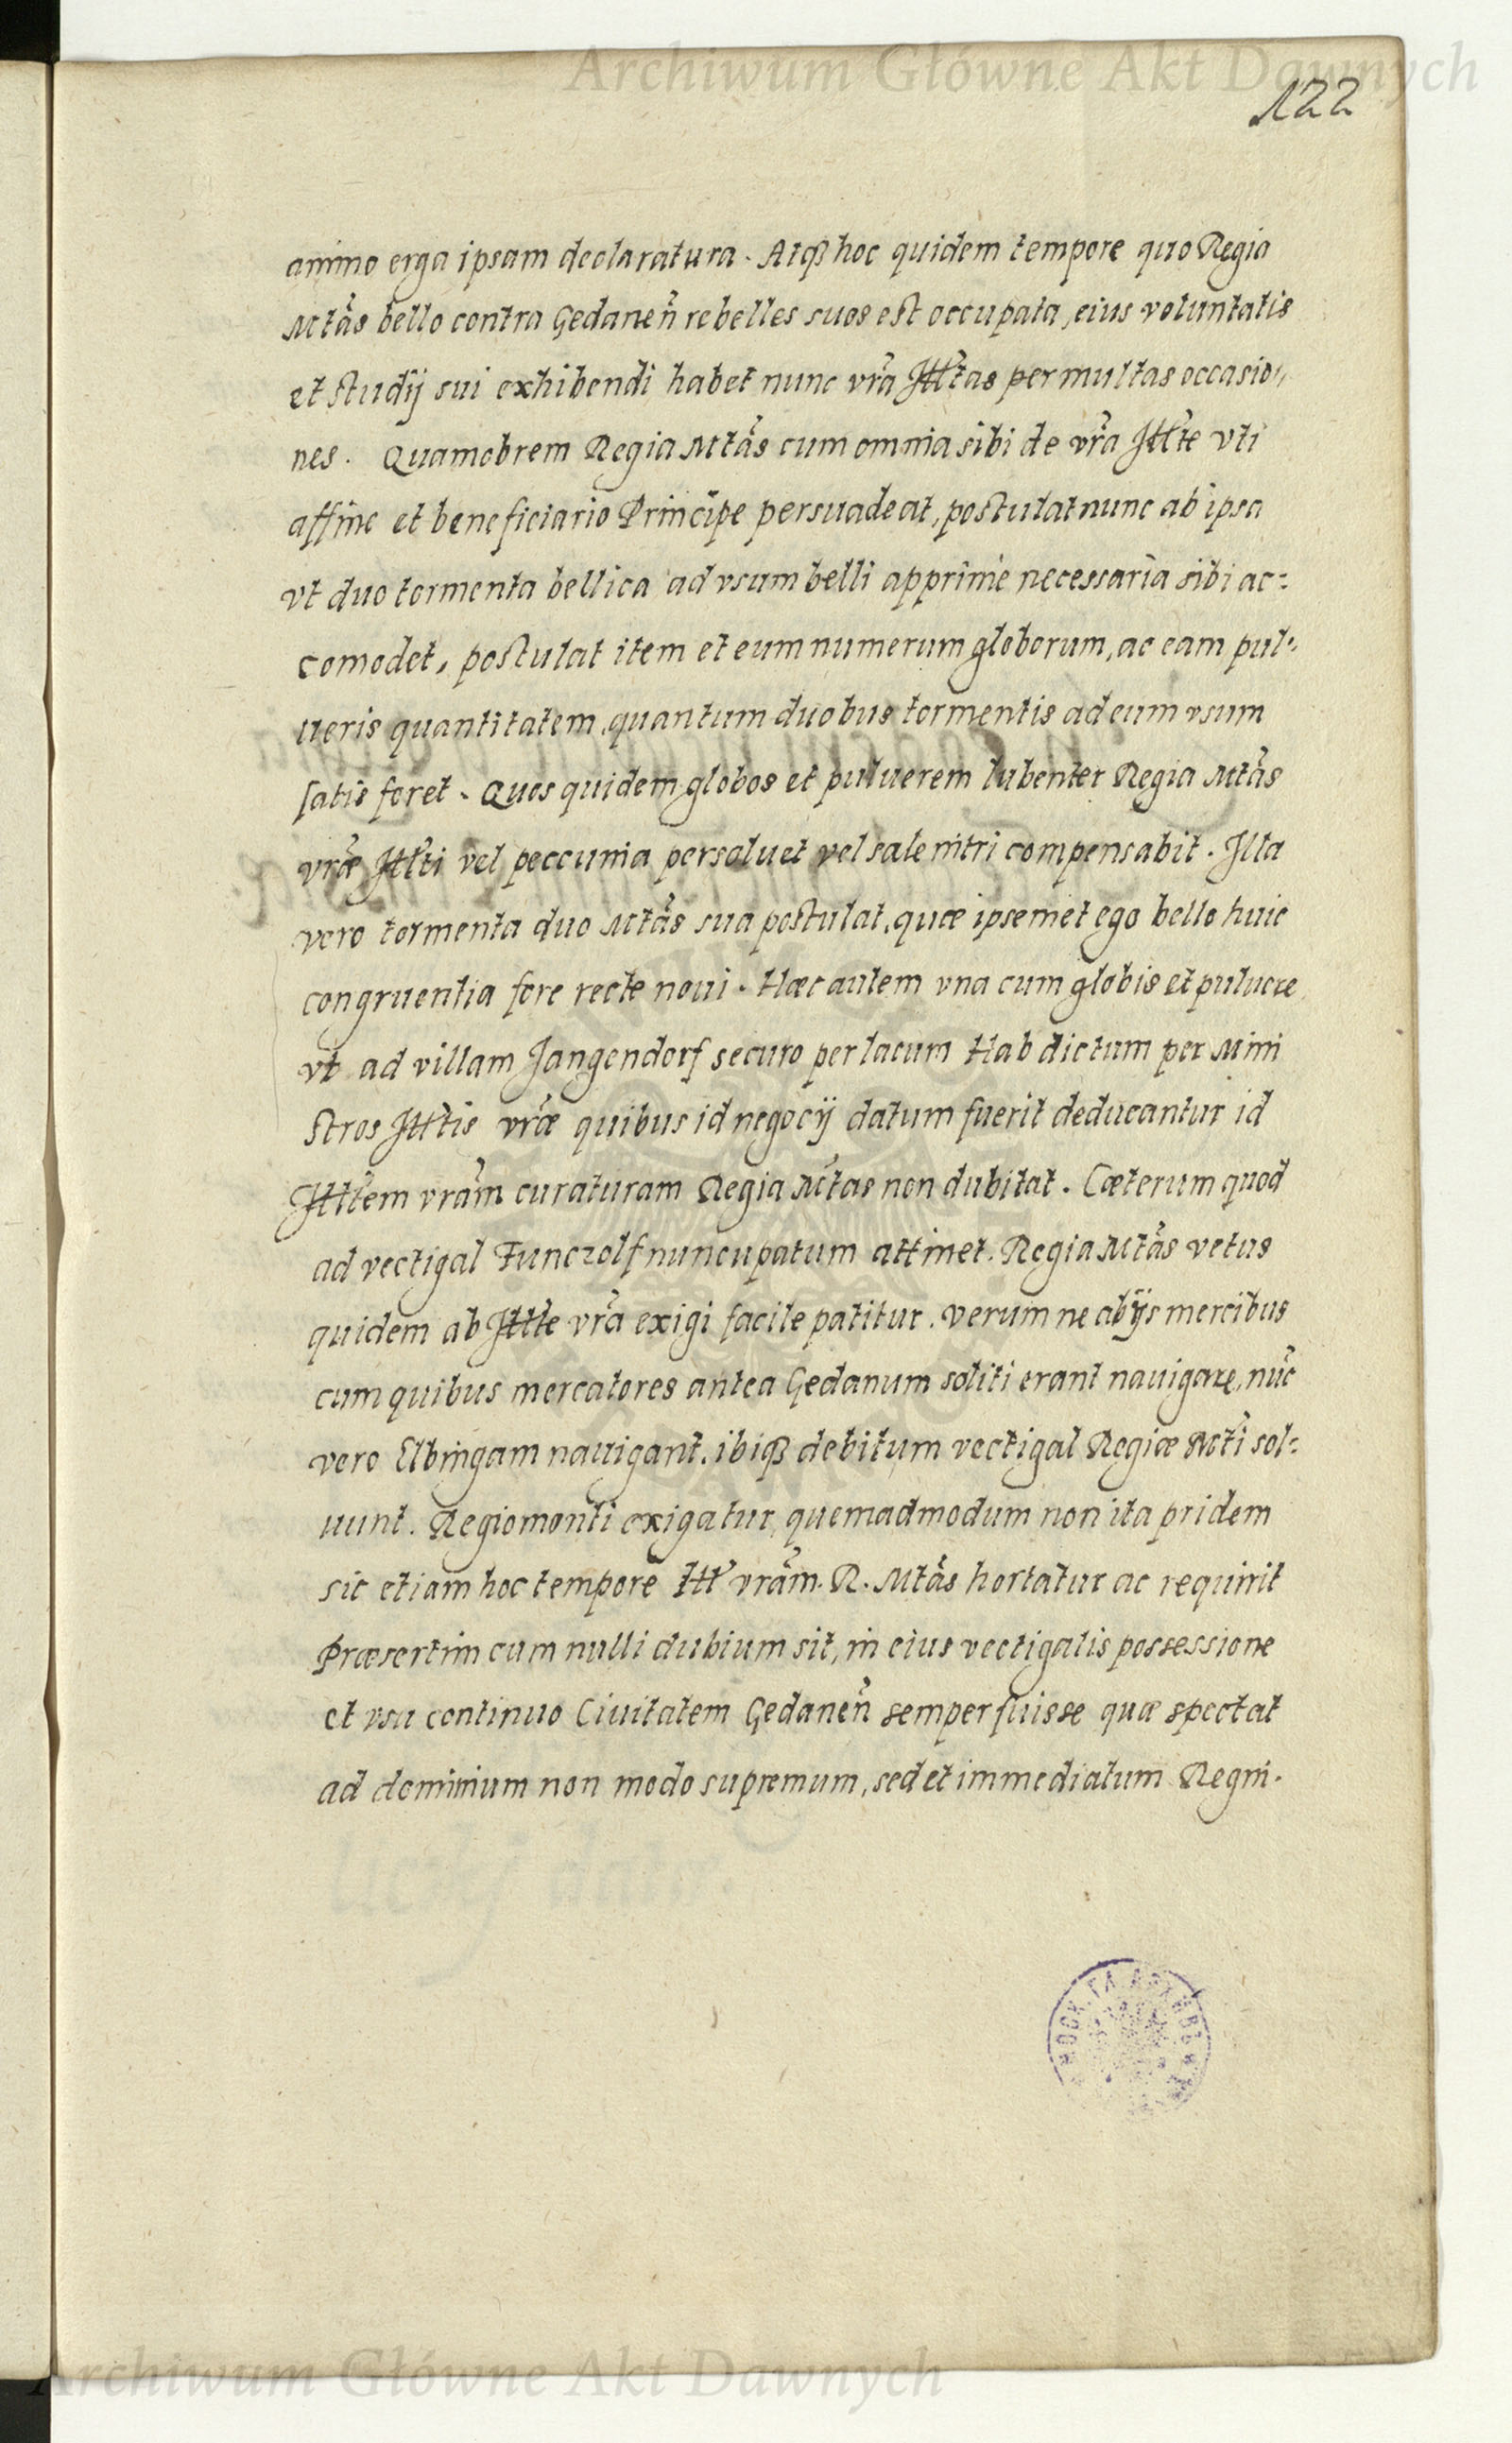 Archiwum Główne Akt Dawnych
122
animo erga ipsam declaratura. Atqꝫ hoc quidem tempore quo Regia
Mtãs bello contra Gedaneñ rebelles suos est occupata, eius voluntatis
et studij sui exhibendi habet nunc vrã Illtas permultas occasio-
nes. Quamobrem Regia Mtãs cum omnia sibi de vrã Illte vti
affine et beneficiario Principe persuadeat, postulat nunc ab ipsa
vt duo tormenta bellica ad vsum belli apprime necessaria sibi ac-
comodet, postulat item et eum numerum globorum, ac eam pul-
ueris quantitatem, quantum duobus tormentis ad eum vsum
satis foret. Quos quidem globos et puluerem lubenter Regia Mtãs
vræ̃ Illti vel peccunia persoluet vel sale nitri compensabit. Illa
vero tormenta duo Mtãs sua postulat, quæ ipsemet ego bello huic
congruentia fore recte noui. Hæc autem vna cum globis et puluere
vt ad villam Jangendorf securo per lacum Hab dictum per Mini
stros Illtis vræ̃ quibus id negocij datum fuerit deducantur id
Illtem vrãm curaturam Regia Mtãs non dubitat. Cæterum quod
ad vectigal Funczolf nuncupatum attinet. Regia Mtãs vetus
quidem ab Illte vrã exigi facile patitur. verum ne ab ijs mercibus
cum quibus mercatores antea Gedanum soliti erant nauigare, nũc
vero Elbingam nauigant, ibiqꝫ debitum vectigal Regiæ Mti sol-
uunt. Regiomonti exigatur, quemadmodum non ita pridem
sic etiam hoc tempore Ill vrãm. R. Mtãs hortatur ac requirit
Præsertim cum nulli dubium sit, in eius vectigalis possessione
et vsu continuo Ciuitatem Gedaneñ semper fuisse quæ spectat
ad dominium non modo supremum, sed et immediatum Regni.
Archiwum Główne Akt Dawnych